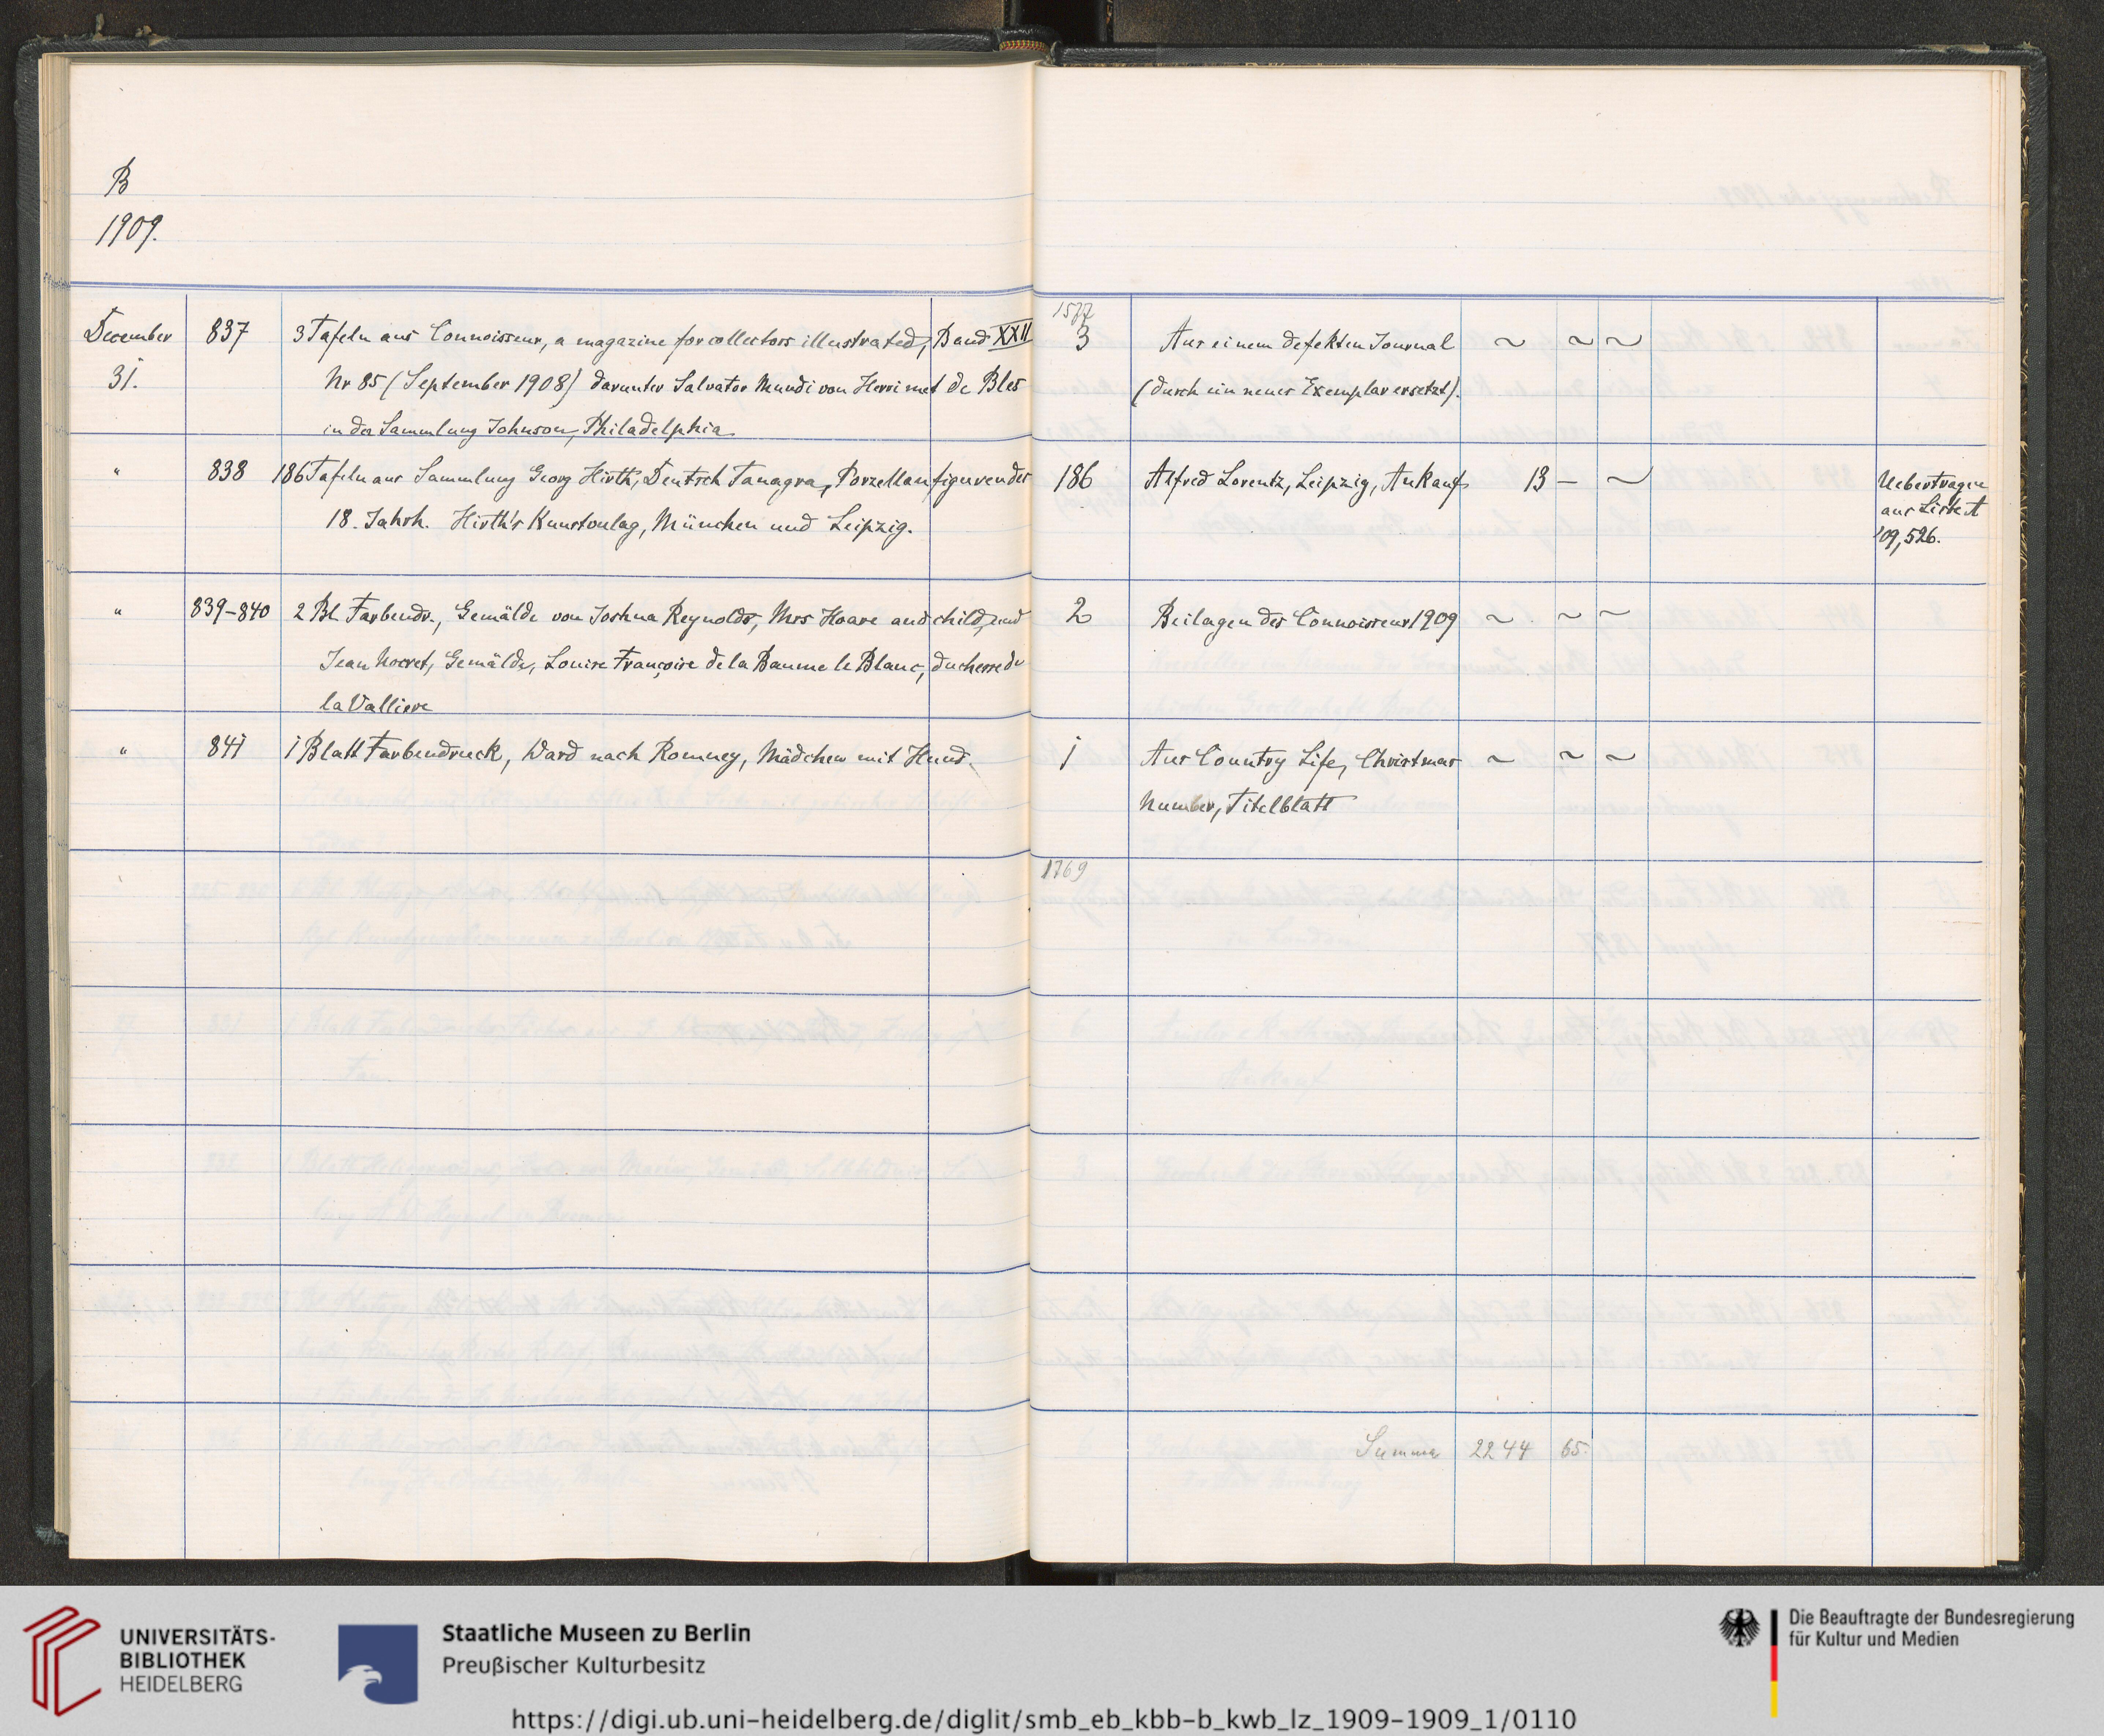 B
1909.
1577
December 837 3 Tafeln aus Connoisseur, a magazine for collectors illustrated, Band XXII 3 Aus einem defekten Journal ~ ~ ~
31. Nr 85 (September 1908) darunter Salvator Mundi von Herri met de Bles (durch ein neues Exemplar ersetzt).
in der Sammlung Johnson, Philadelphia
" 838 186 Tafeln aus Sammlung Georg Hirth, Deutsch Tanagra, Porzellanfiguren des 186 Alfred Lorentz, Leipzig, Ankauf 13 – ~ Uebertragen
18. Jahrh. Hirth's Kunstverlag, München und Leipzig. aus Liste A
'09,526.
" 839-840 2 Bl. Farbendr., Gemälde von Joshua Reynolds, Mrs Hoare and child, und 2 Beilagen des Connoisseur 1909 ~ ~ ~
Jean Nocret, Gemälde, Louise Françoise de la Baume le Blanc, duchesse de
la Valliere
" 841 1 Blatt Farbendruck, Ward nach Romney, Mädchen mit Hund. 1 Aus Country Life, Christmas ~ ~ ~
Number, Titelblatt
1769
Summa 2244 65.
UNIVERSITÄTS-
BIBLIOTHEK
HEIDELBERG
Staatliche Museen zu Berlin
Preußischer Kulturbesitz
Die Beauftragte der Bundesregierung
für Kultur und Medien
https://digi.ub.uni-heidelberg.de/diglit/smb_eb_kbb-b_kwb_lz_1909-1909_1/0110